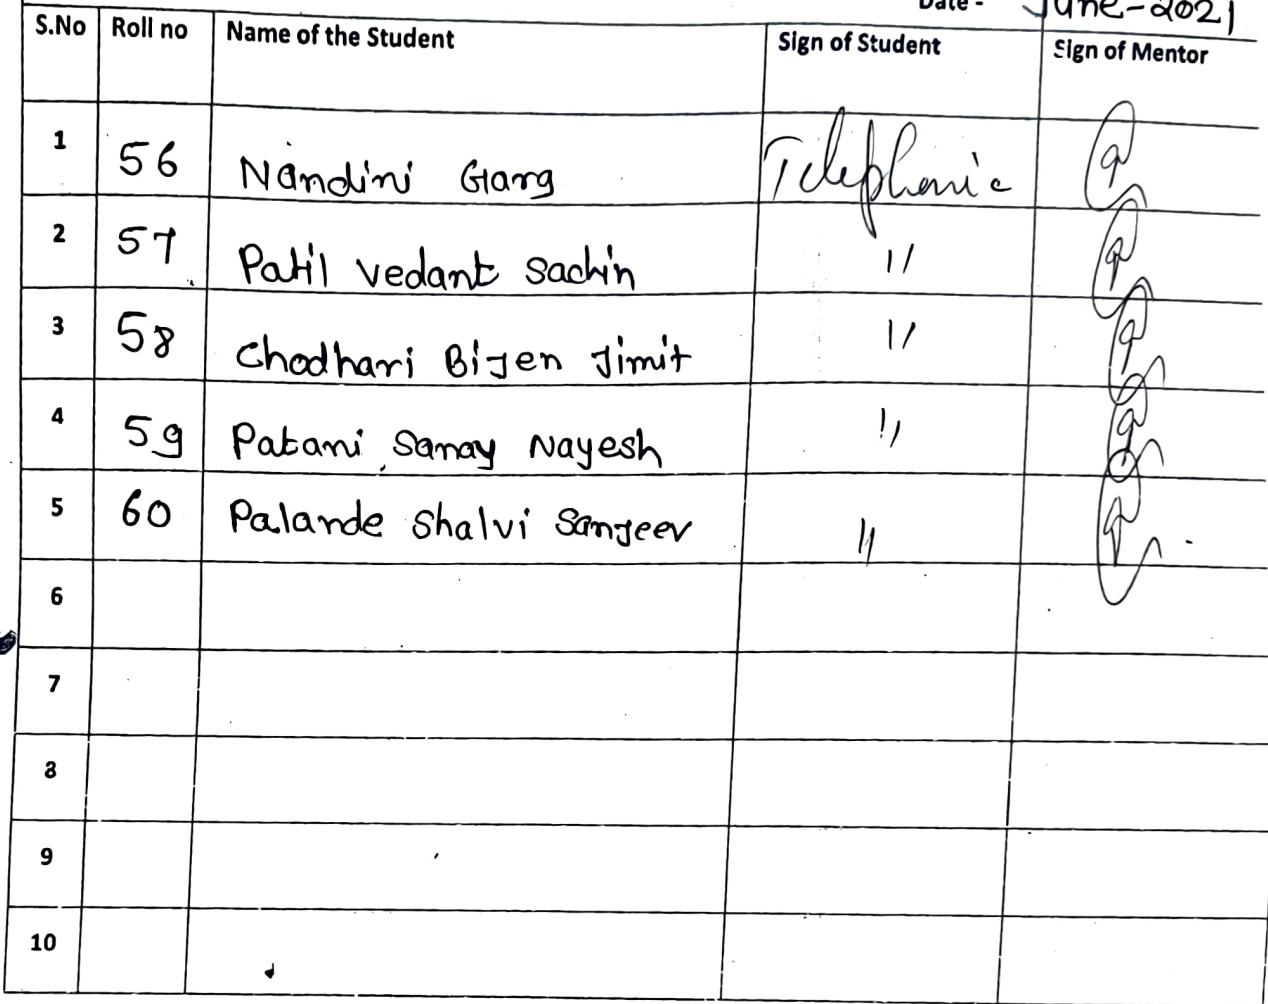 Date - June-2021
S.No Roll no Name of the Student Sign of Student Sign of Mentor
1 56 Nandini Garg Telephonic
2 57 Patil Vedant Sachin 11
3 58 Chodhari BiJen Jimit 11
4 59 Patani Sanay Nayesh 11
5 60 Palande Shalvi SanJeev 11
6
7
8
9
10